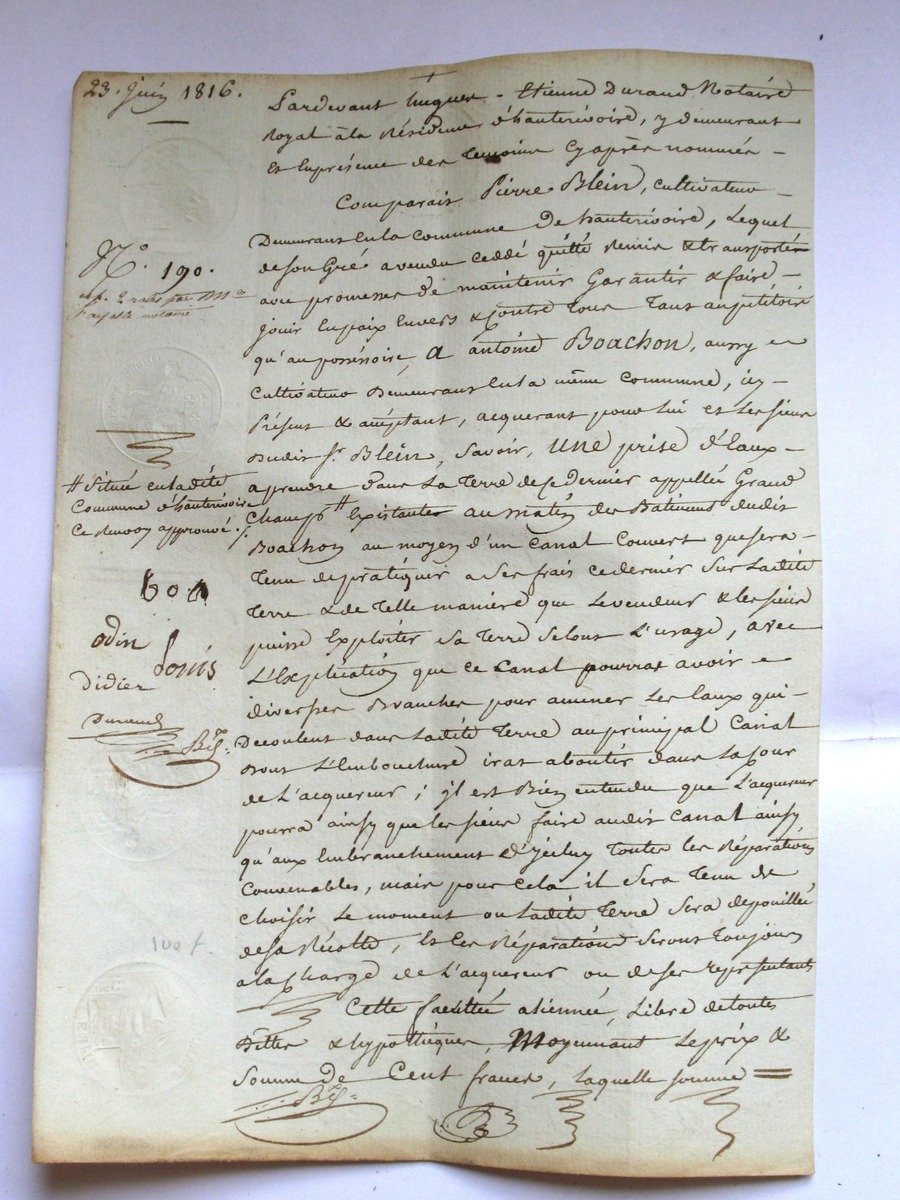 23. Juin 1816.
Pardevant hugues - Etienne Durand Notaire
Royal à la Résidence d'hauterivoire, y demeurant
Et En présence des Temoins Cy après nommés -
Comparait Pierre Blein, Cultivateur
Demeurant En la Commune De hauterivoire, Lequel
de son Gré a vendu ceddé quitté Remis & transporté
N.° 190.
avec promesses de maintenir Garantir & faire -
jouir En paix Envers & Contre Tous Tant au pétitoire
qu'au possessoire, A antoine Boachon, aussy
Cultivateur Demeurant En la même Commune, icy -
Présent & acceptant, acquerant pour Lui et Les siens
Dudit Sr. Blein, Savoir, une prise d'Eaux -
# Située en ladite
Commune d'hauterivoire
Ce renvoy approuvé ./.
a prendre dans La Terre de Ce dernier appellée Grand
Champs # Existantes au matin des Batiments dudit
Boachon au moyen d'un Canal Couvert que sera -
Tenu de pratiquer a Ses frais ce dernier Sur Ladite
Terre & de Telle manière que Le vendeur & les siens
puisse Exploiter Sa Terre Selont L'usage, avec
odin
Louis
didier
Durand
L'Explication que ce Canal pourrat avoir
diverses Branches pour amener Les Eaux qui -
Decoulent dans Ladite Terre au principal Canal
Dont L'Embouchure irat aboutir dans La Cour
de L'acquereur ; il est Bien entendu que L'acquereur
pourra ainsy que les siens faire audit Canal ainsy
qu'aux Embranchement d'yceluy Toutes les Réparations
Convenables, mais pour Cela il Sera Tenu de
Choisir Le moment ou Ladite Terre Sera depouillée
de sa Récolte, Et Les Réparations Seront Toujours
a la Charge de L'acquereur ou de ses représentants
100 f.
Cette faculté aliennée, Libre de toutes
Dettes & hypothèques, Moyennant Le prix &
Somme de Cent francs, laquelle somme =